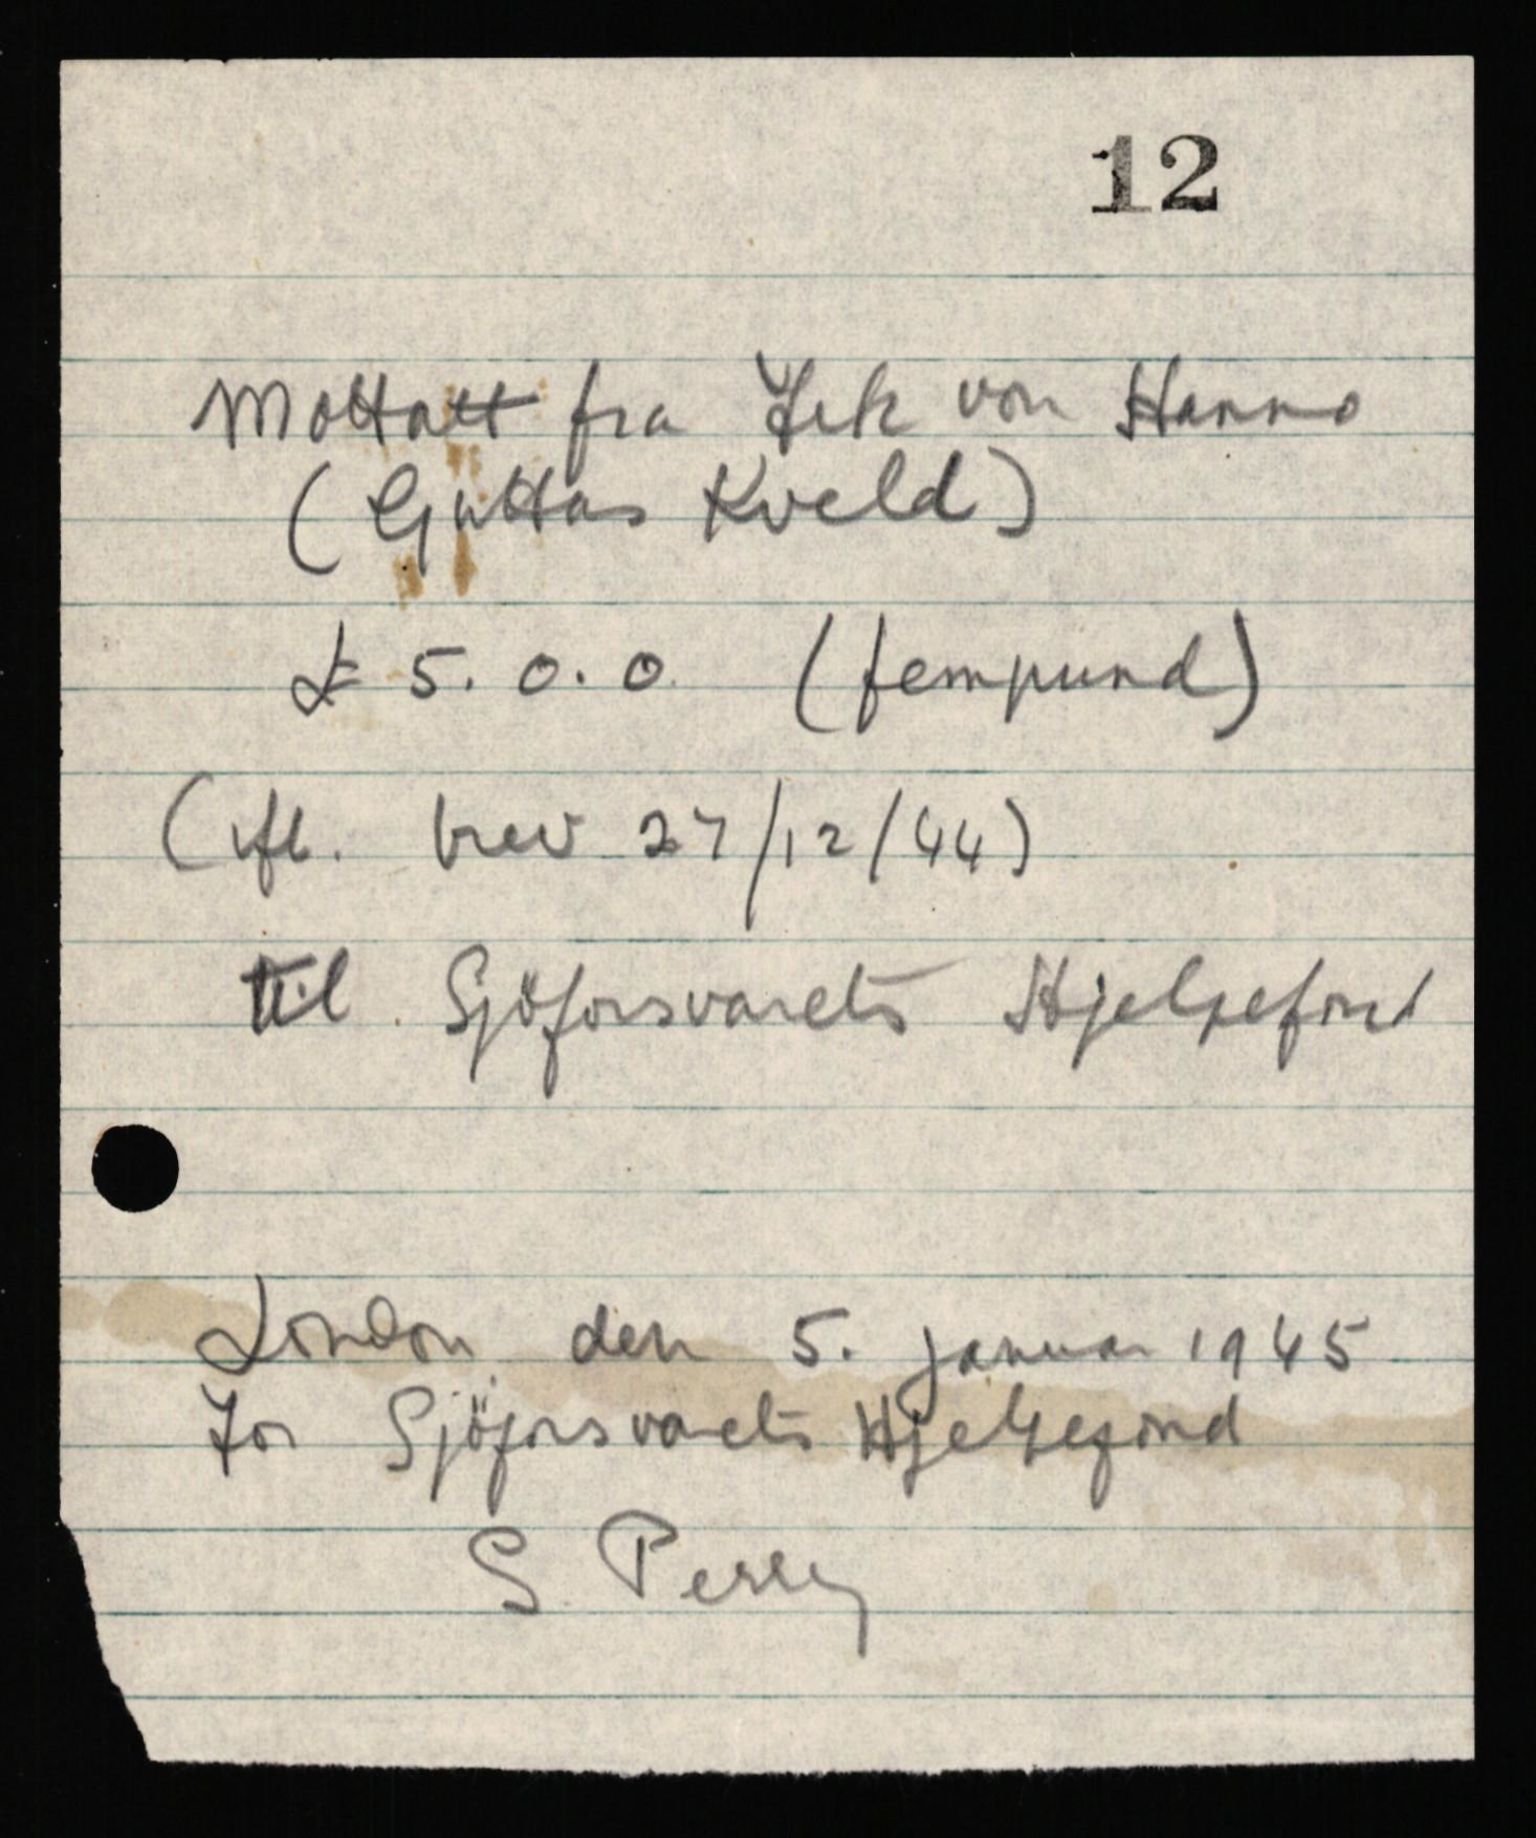 12
Mottatt fra Frk von Hanno
(Guttas Kveld)
£ 5. 0. 0. (fempund)
(ifl. brev 27/12/44)
til Sjöforsvarets Hjelpefond
London den 5. januar 1945
For Sjöforsvarets Hjelpefond
S Perry